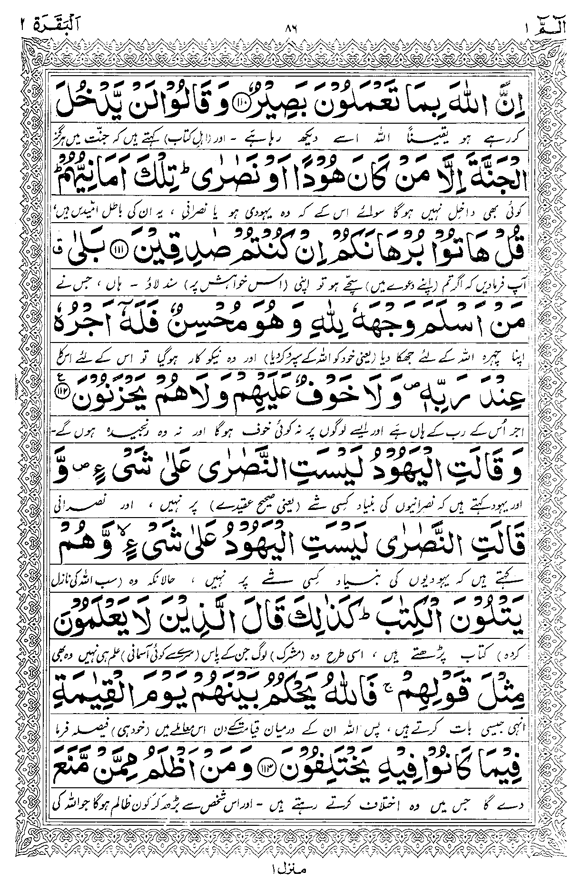 الٓمّٓ ١ ٨٦ اَلْبَقَرَة ٢
اِنَّ اللّٰهَ بِمَا تَعْمَلُوْنَ بَصِيْرٌ ﴿١١٠﴾ وَ قَالُوْا لَنْ يَّدْخُلَ
کر رہے ہو یقیناً اللہ اسے دیکھ رہا ہے - اور (اہلِ کتاب) کہتے ہیں کہ جنّت میں ہرگز
الْجَنَّةَ اِلَّا مَنْ كَانَ هُوْدًا اَوْ نَصٰرٰی ؕ تِلْكَ اَمَانِيُّهُمْ ؕ
کوئی بھی داخل نہیں ہوگا سوائے اس کے کہ وہ یہودی ہو یا نصرانی ، یہ ان کی باطل امیدیں ہیں،
قُلْ هَاتُوْا بُرْهَانَكُمْ اِنْ كُنْتُمْ صٰدِقِيْنَ ﴿١١١﴾ بَلٰی ۗ
آپ فرما دیں کہ اگر تم (اپنے دعوے میں) سچّے ہو تو اپنی (اس خواہش پر) سند لاؤ - ہاں ، جس نے
مَنْ اَسْلَمَ وَجْهَهٗ لِلّٰهِ وَ هُوَ مُحْسِنٌ فَلَهٗۤ اَجْرُهٗ
اپنا چہرہ اللہ کے لئے جھکا دیا (یعنی خود کو اللہ کے سپرد کر دیا) اور وہ نیکوکار ہوگیا تو اس کے لئے اس کا
عِنْدَ رَبِّهٖ ۪ وَ لَا خَوْفٌ عَلَيْهِمْ وَ لَا هُمْ يَحْزَنُوْنَ ﴿١١٢﴾ ع
اجر اُس کے رب کے ہاں ہے اور ایسے لوگوں پر نہ کوئی خوف ہوگا اور نہ وہ رنجیدہ ہوں گے-
وَ قَالَتِ الْيَهُوْدُ لَيْسَتِ النَّصٰرٰی عَلٰی شَیْءٍ ۪ وَّ
اور یہود کہتے ہیں کہ نصرانیوں کی بنیاد کسی شے (یعنی صحیح عقیدے) پر نہیں ، اور نصرانی
قَالَتِ النَّصٰرٰی لَيْسَتِ الْيَهُوْدُ عَلٰی شَیْءٍ ۙ وَّ هُمْ
کہتے ہیں کہ یہودیوں کی بنیاد کسی شے پر نہیں ، حالانکہ وہ (سب اللہ کی نازل
يَتْلُوْنَ الْكِتٰبَ ؕ كَذٰلِكَ قَالَ الَّذِيْنَ لَا يَعْلَمُوْنَ
کردہ) کتاب پڑھتے ہیں ، اسی طرح وہ (مشرک) لوگ جن کے پاس (سرے سے کوئی آسمانی) علم ہی نہیں وہ بھی
مِثْلَ قَوْلِهِمْ ۚ فَاللّٰهُ يَحْكُمُ بَيْنَهُمْ يَوْمَ الْقِيٰمَةِ
انہی جیسی بات کرتے ہیں ، پس اللہ ان کے درمیان قیامت کے دن اس معاملے میں (خود ہی) فیصلہ فرما
فِيْمَا كَانُوْا فِيْهِ يَخْتَلِفُوْنَ ﴿١١٣﴾ وَ مَنْ اَظْلَمُ مِمَّنْ مَّنَعَ
دے گا جس میں وہ اختلاف کرتے رہتے ہیں - اور اس شخص سے بڑھ کر کون ظالم ہوگا جو اللہ کی
منزل ١